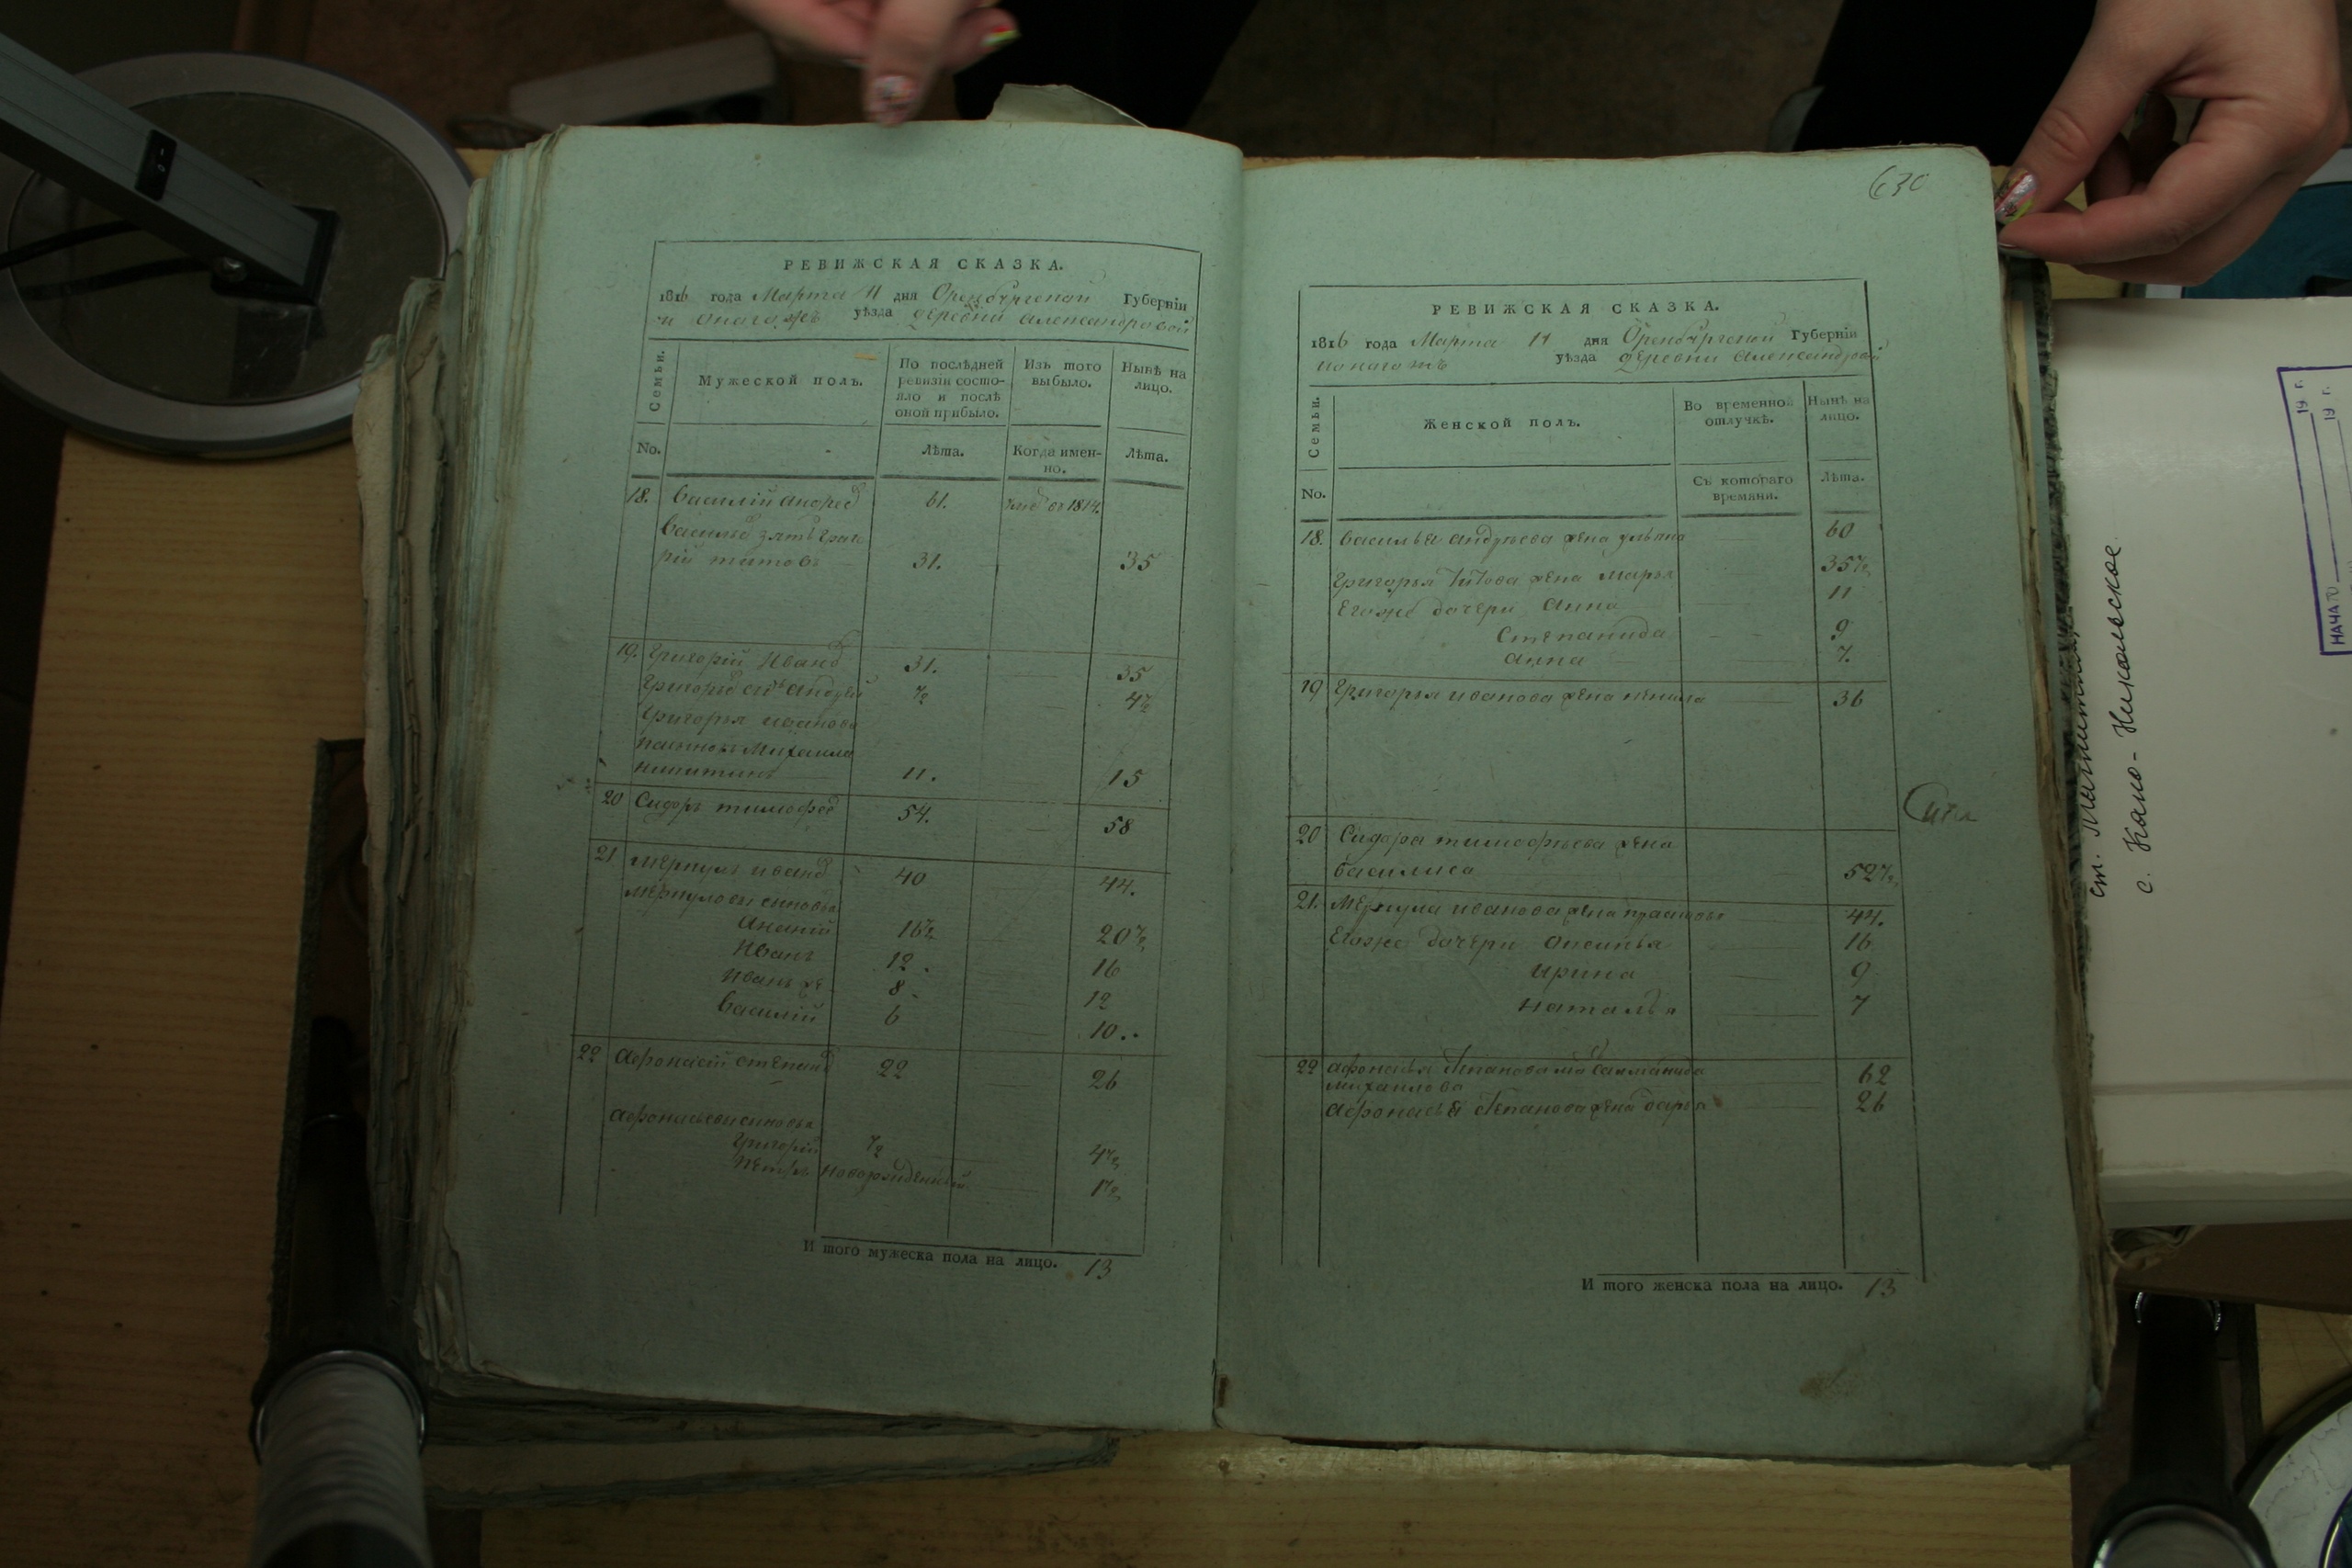 РЕВИЖСКАЯ СКАЗКА.
1816 года Марта 11 дня Оренбургской Губерніи
и оногожъ уѣзда деревни александровой
Семьи.
Мужеской полъ.
По послѣдней ревизіи состояло и послѣ оной прибыло.
Изъ того выбыло.
Нынѣ на лицо.
No.
Лѣта.
Когда именно.
Лѣта.
18. Василій андреев 61. умре въ 1814.
Васильев зять григо
рій титовъ 31. 35
19. Григорій Иванов 31. 35
Григорьев сынъ андрей ½ 4½
Григорья иванова
пасынокъ Михаила
никитинъ 11. 15
20 Сидоръ тимофеев 54. 58
21 Меркулъ иванов 40 44.
меркуловы сыновья
ананий 16½ 20½
Иванъ 12. 16
Иванъ же 8. 12
Василій 6 10..
22 Афонасий степанов 22 26
Афонасьевы сыновья
Григорій ½ 4½
Петръ новорожденный 1½
И того мужеска пола на лицо. 13
630
РЕВИЖСКАЯ СКАЗКА.
1816 года Марта 11 дня Оренбургской Губерніи
и оногожъ уѣзда деревни александровой
Семьи.
Женской полъ.
Во временной отлучкѣ.
Нынѣ на лицо.
No.
Съ котораго времяни.
Лѣта.
18. Василья андреева жена ульяна 60
Григорья Титова жена марья 35½
Егоже дочери Анна 11
Степанида 9
Анна 7.
19 Григорья иванова жена ненила 36
20 Сидора тимофеева жена
василиса 52½
21. Меркула иванова жена прасковья 44.
Егоже дочери Аксинья 16
Ирина 9
Наталья 7
22 афонасья степанова мать
михаилова 62
Афонасья степанова жена дарья 26
И того женска пола на лицо. 13
с. Кано-Никольское
19 г.
19 г.
НАЧАТО